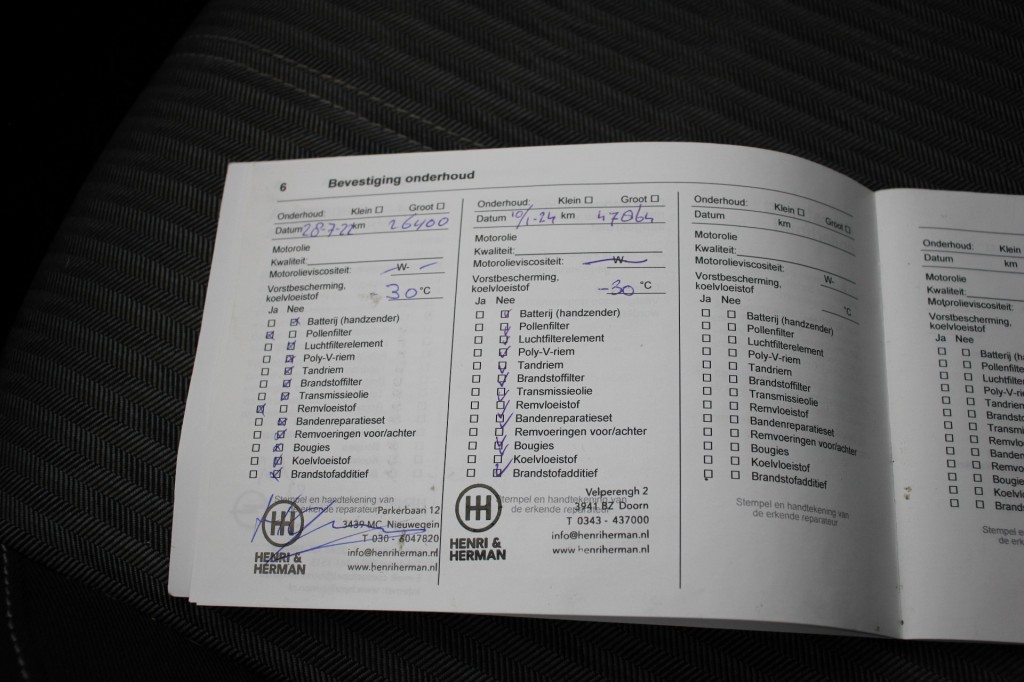 6 Bevestiging onderhoud
Onderhoud: Klein ☐ Groot ☐
Datum 28-7-22 km 26400
Motorolie
Kwaliteit:
Motorolieviscositeit: -W-
Vorstbescherming,
koelvloeistof 30 °C
Ja Nee
☐ ☑ Batterij (handzender)
☑ ☐ Pollenfilter
☐ ☑ Luchtfilterelement
☐ ☑ Poly-V-riem
☐ ☑ Tandriem
☐ ☑ Brandstoffilter
☐ ☑ Transmissieolie
☑ ☐ Remvloeistof
☐ ☑ Bandenreparatieset
☐ ☑ Remvoeringen voor/achter
☐ ☑ Bougies
☐ ☑ Koelvloeistof
☐ ☑ Brandstofadditief
Stempel en handtekening van
de erkende reparateur
Parkerbaan 12
3439 MC Nieuwegein
T 030 - 6047820
info@henriherman.nl
www.henriherman.nl
HH
HENRI &
HERMAN
Onderhoud: Klein ☐ Groot ☐
Datum 10/1-24 km 47864
Motorolie
Kwaliteit:
Motorolieviscositeit: -W-
Vorstbescherming,
koelvloeistof -30 °C
Ja Nee
☐ ☑ Batterij (handzender)
☐ ☑ Pollenfilter
☐ ☑ Luchtfilterelement
☐ ☑ Poly-V-riem
☐ ☑ Tandriem
☐ ☑ Brandstoffilter
☐ ☑ Transmissieolie
☐ ☑ Remvloeistof
☐ ☑ Bandenreparatieset
☐ ☑ Remvoeringen voor/achter
☐ ☑ Bougies
☐ ☑ Koelvloeistof
☐ ☑ Brandstofadditief
Stempel en handtekening van
de erkende reparateur
Velperengh 2
3941 BZ Doorn
T 0343 - 437000
info@henriherman.nl
www.henriherman.nl
HH
HENRI &
HERMAN
Onderhoud: Klein ☐ Groot ☐
Datum km
Motorolie
Kwaliteit:
Motorolieviscositeit: W-
Vorstbescherming,
koelvloeistof °C
Ja Nee
☐ ☐ Batterij (handzender)
☐ ☐ Pollenfilter
☐ ☐ Luchtfilterelement
☐ ☐ Poly-V-riem
☐ ☐ Tandriem
☐ ☐ Brandstoffilter
☐ ☐ Transmissieolie
☐ ☐ Remvloeistof
☐ ☐ Bandenreparatieset
☐ ☐ Remvoeringen voor/achter
☐ ☐ Bougies
☐ ☐ Koelvloeistof
☐ ☐ Brandstofadditief
Stempel en handtekening van
de erkende reparateur
Onderhoud: Klein
Datum km
Motorolie
Kwaliteit:
Motorolieviscositeit:
Vorstbescherming,
koelvloeistof
Ja Nee
☐ ☐ Batterij (h
☐ ☐ Pollenfilte
☐ ☐ Luchtfilte
☐ ☐ Poly-V-ri
☐ ☐ Tandriem
☐ ☐ Brandsto
☐ ☐ Transmis
☐ ☐ Remvlo
☐ ☐ Banden
☐ ☐ Remvo
☐ ☐ Bougie
☐ ☐ Koelvl
☐ ☐ Brands
Stempel e
de erk